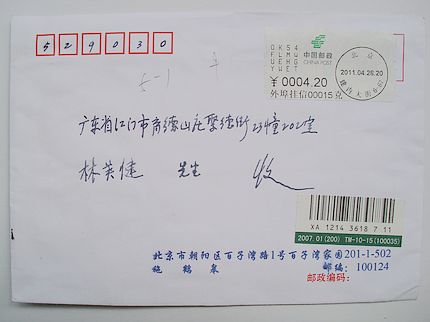 529030
OK54
FLMW
UEHG
YWET
中国邮政
CHINA POST
¥0004.20
外埠挂信00015克
北京
2011.04.26.20
广东省江门市
林英健 先生 收
XA 1214 3618 7 11
2007.01(200) TM-10-15(100035)
北京市朝阳区百子湾路1号百子湾家园201-1-502
施鹤泉 邮编:100124
邮政编码: